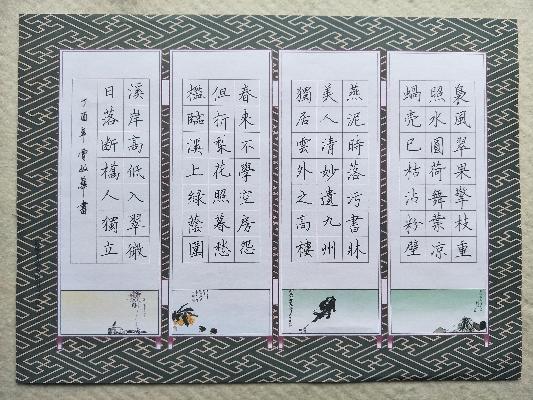 裊風翠果擎枝重
照水圓荷舞葉凉
蝸壳已枯沾粉壁
燕泥時落污書牀
美人清妙遺九州
獨居雲外之高樓
春來不學空房怨
但折梨花照暮愁
檻臨溪上綠蔭圍
溪岸高低入翠微
日落斷橋人獨立
丁酉年 書